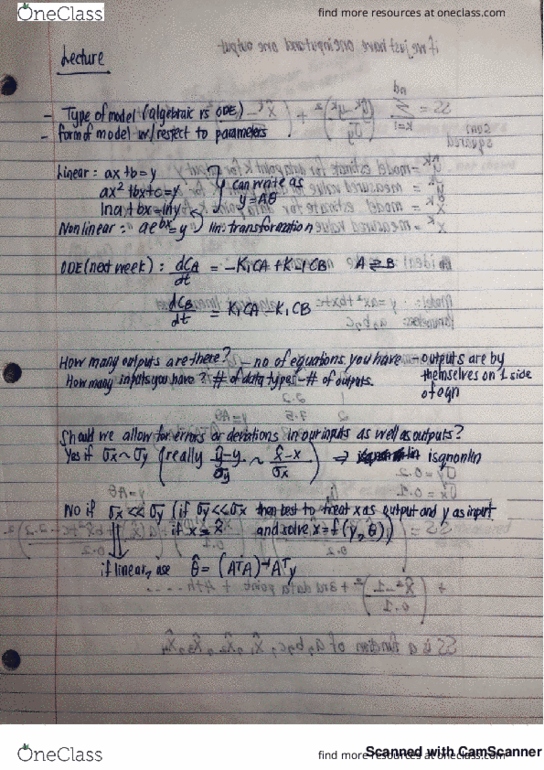 OneClass
find more resources at oneclass.com
Lecture
- Type of model (algebraic vs ODE)
- form of model w/respect to parameters
Linear: ax+b=y
ax²+bx+c=y
lna+bx=lny
can write as
y=Aθ
Nonlinear: ae^bx=y
lin. transformation
ODE(next week): dCA/dt = -K₁CA+K-1CB A⇌B
dCB/dt = K₁CA-K-1CB
How many outputs are there? - no of equations you have - outputs are by
How many inputs you have? # of data types - # of outputs. themselves on 1 side
of eqn
Should we allow for errors or deviations in our inputs as well as outputs?
Yes if σx~σy (really ŷ-y/σy ~ x̂-x/σx) ⇒ isqnonlin
No if σx<<σy (if σy<<σx then best to treat x as output and y as input
if x=x̂ and solve x=f(y,θ))
if linear, use θ̂=(AᵀA)⁻¹Aᵀy
OneClass
find more resources at oneclass.com
Scanned with CamScanner